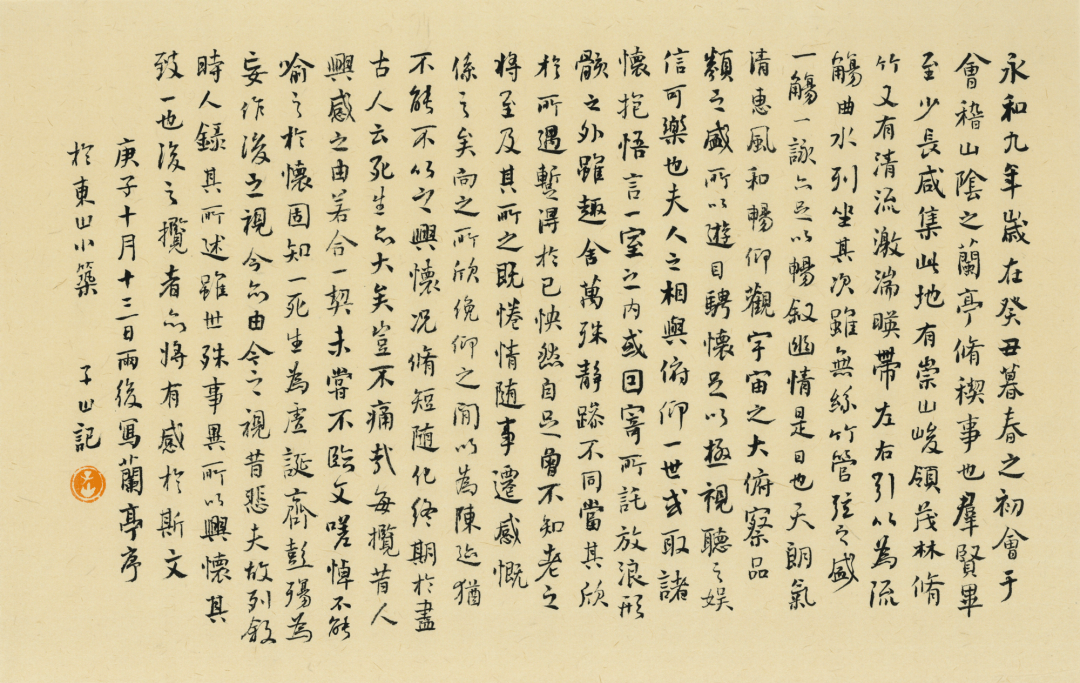 永和九年歲在癸丑暮春之初會于
會稽山陰之蘭亭脩稧事也羣賢畢
至少長咸集此地有崇山峻領茂林脩
竹又有清流激湍暎帶左右引以為流
觴曲水列坐其次雖無絲竹管弦之盛
一觴一詠亦足以暢敘幽情是日也天朗氣
清惠風和暢仰觀宇宙之大俯察品
類之盛所以遊目騁懷足以極視聽之娛
信可樂也夫人之相與俯仰一世或取諸
懷抱悟言一室之內或因寄所託放浪形
骸之外雖趣舍萬殊靜躁不同當其欣
於所遇暫得於己怏然自足曾不知老之
將至及其所之既惓情隨事遷感慨
係之矣向之所欣俛仰之閒以為陳迹猶
不能不以之興懷況脩短隨化終期於盡
古人云死生亦大矣豈不痛哉每攬昔人
興感之由若合一契未嘗不臨文嗟悼不能
喻之於懷固知一死生為虛誕齊彭殤為
妄作後之視今亦由今之視昔悲夫故列敘
時人錄其所述雖世殊事異所以興懷其
致一也後之攬者亦將有感於斯文
庚子十月十三日雨後寫蘭亭序
於東山小築 子山記